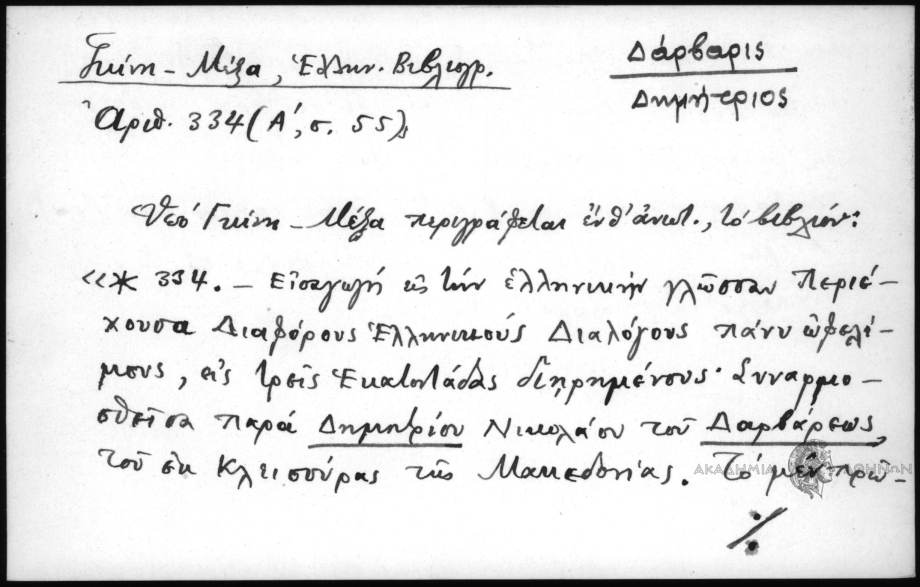 Γκίνη - Μέξα, Ἑλλην. Βιβλιογρ.
Ἀριθ. 334 (Α΄, σ. 55)
Δάρβαρις
Δημήτριος
Ὑπό Γκίνη - Μέξα περιγράφεται ἐνθ' ἀνωτ., τό βιβλίον:
«* 334. - Εἰσαγωγή εἰς τήν ἑλληνικήν γλῶσσαν Περιέ-
χουσα Διαφόρους Ἑλληνικούς Διαλόγους πάνυ ὠφελί-
μους, εἰς τρεῖς Ἑκατοντάδας διῃρημένους· Συναρμο-
σθεῖσα παρά Δημητρίου Νικολάου τοῦ Δαρβάρεως,
τοῦ ἐκ Κλεισούρας τῆς Μακεδονίας. Τό μέν πρῶ-
ΑΚΑΔΗΜΙΑ ΑΘΗΝΩΝ
./.